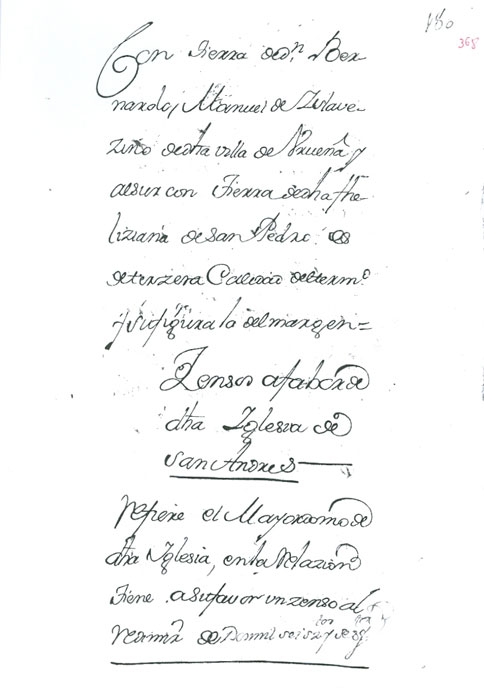 180
368
Con tierra de dn. Ber-
nardo, Manuel de Zilave-
zino dedha villa de Vrueña y
alsur con Tierra dedha fhe-
liziana de San Pedro es
deterzera Calidad determº
y su figura la del margen =
Zensos afabor de
dha Yglesia de
San Andres
refiere el Mayordomo de
dha Yglesia, en la Relazion
tiene asufavor un zenso al
de